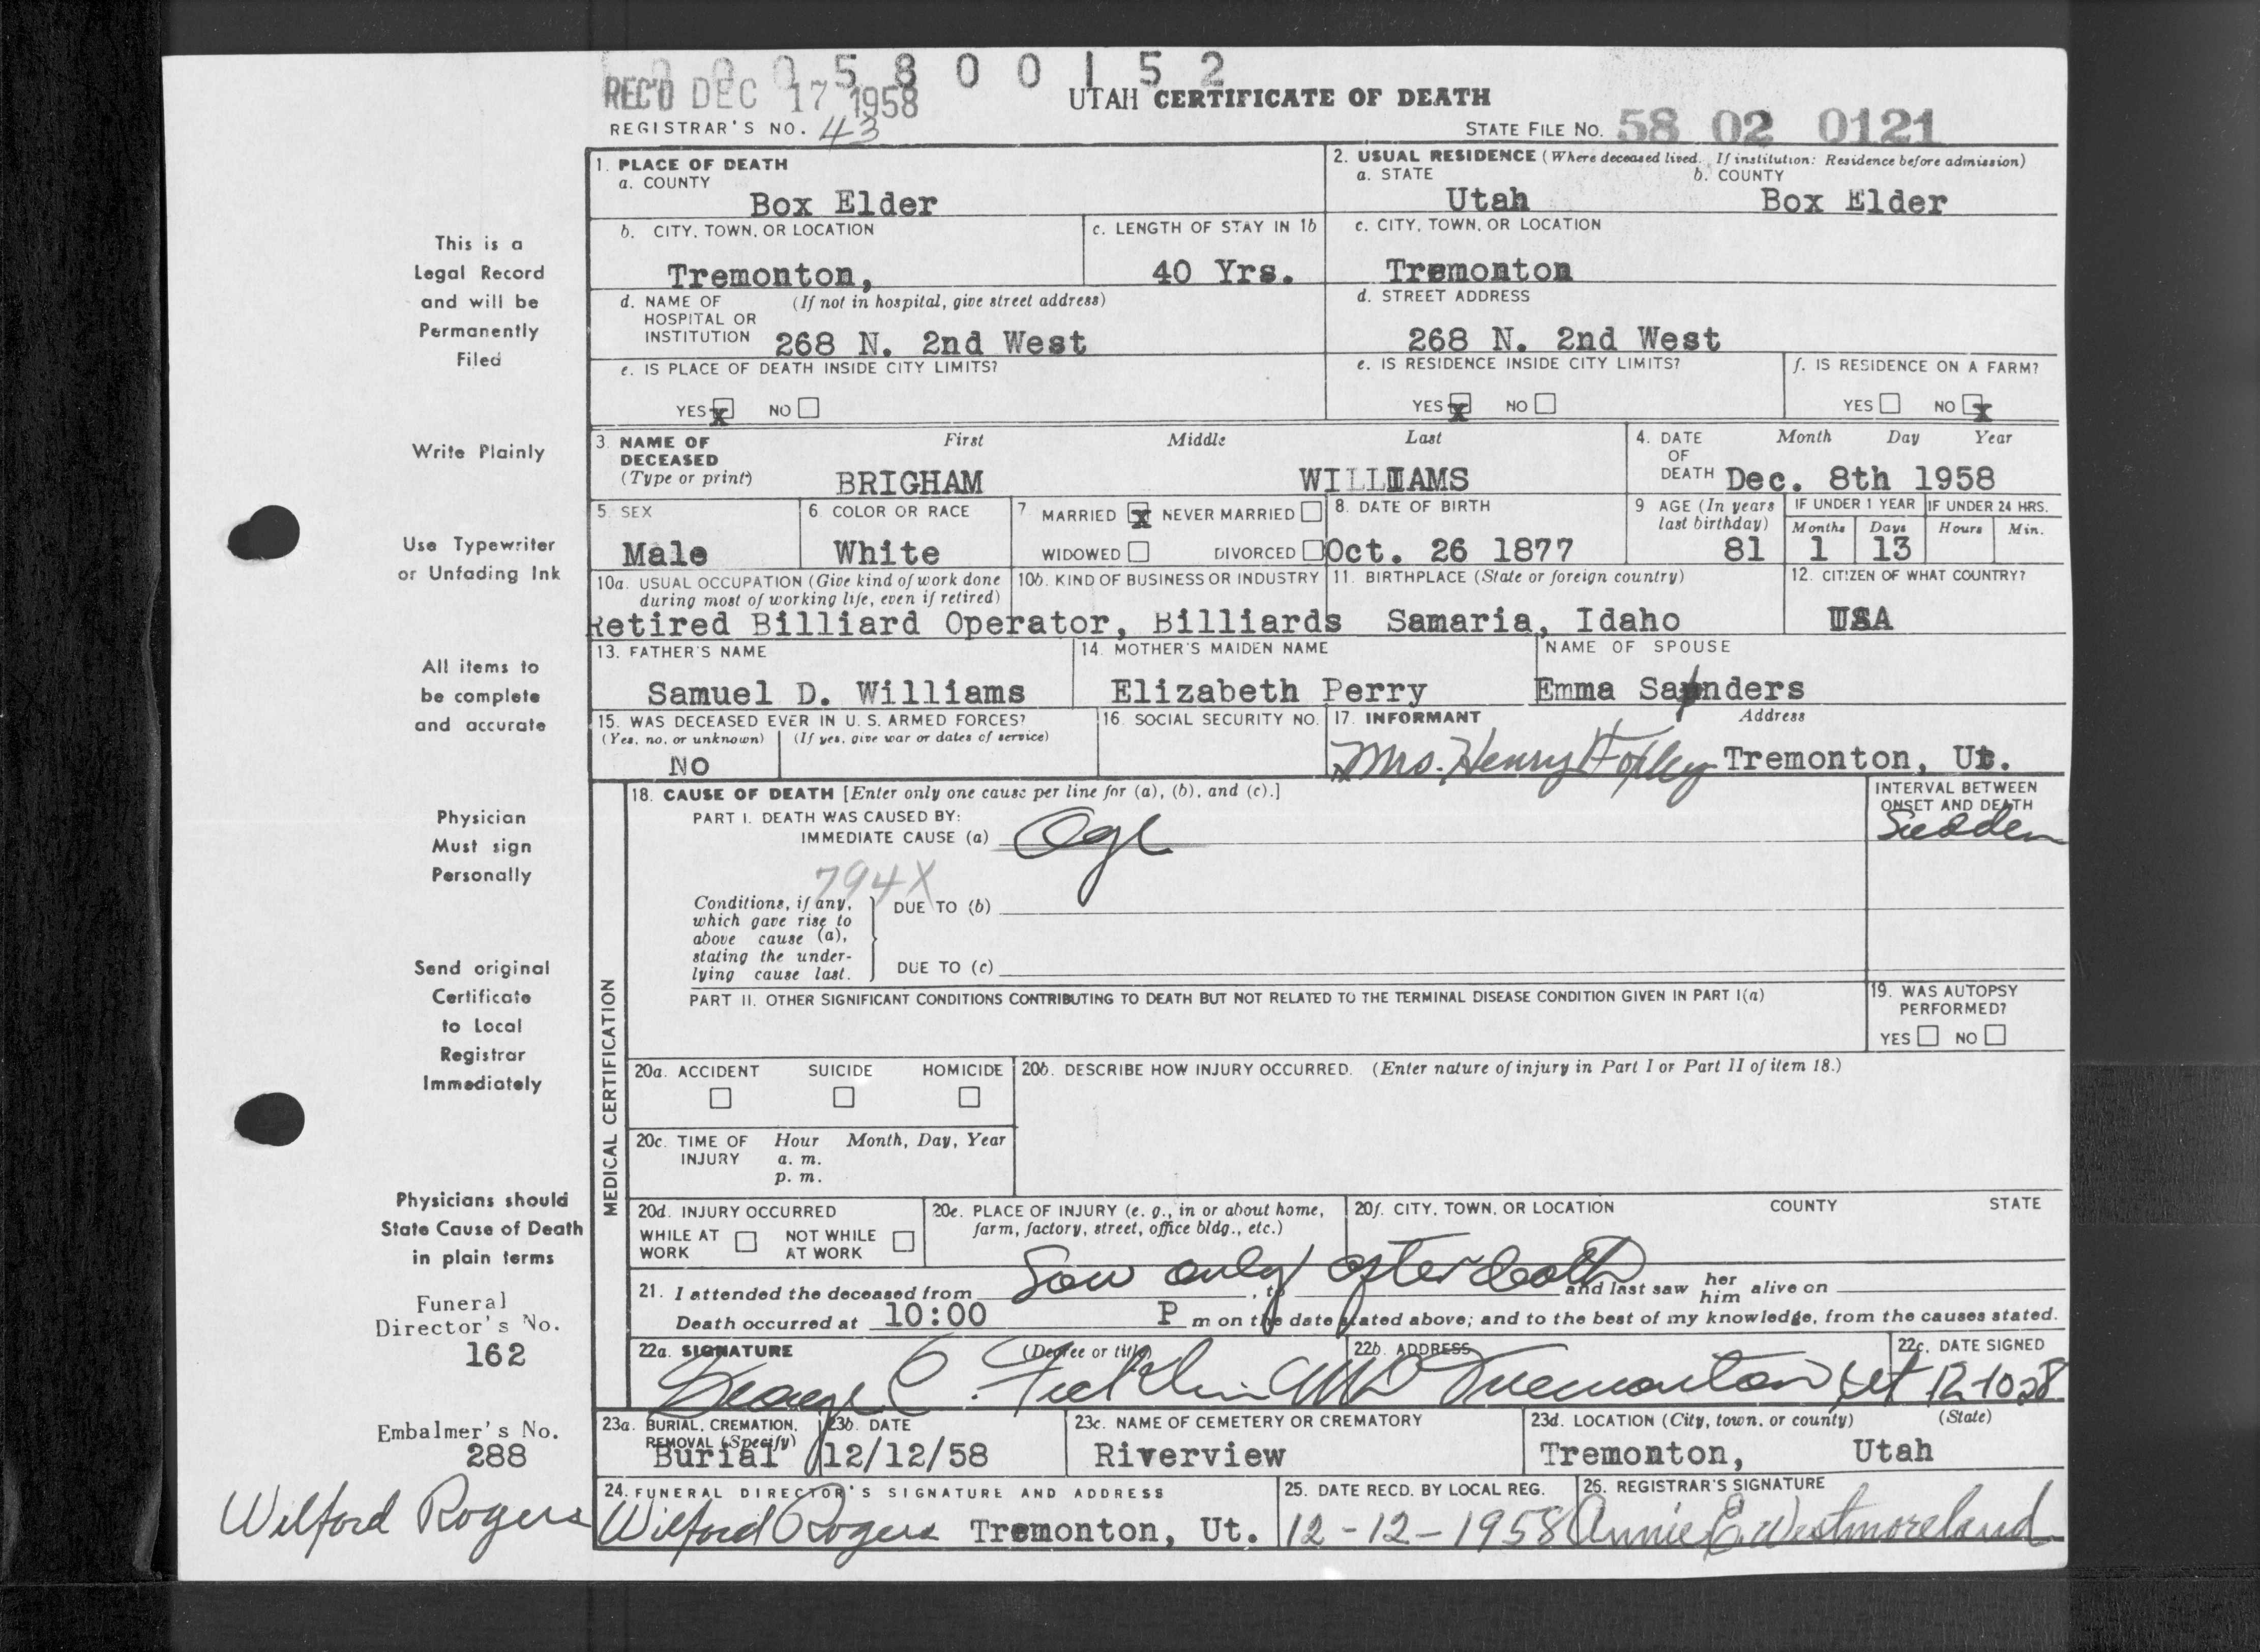 0 0 0 5 8 0 0 1 5 2
REC'D DEC 17 1958
UTAH CERTIFICATE OF DEATH
REGISTRAR'S NO. 43
STATE FILE NO. 58 02 0121
1. PLACE OF DEATH
a. COUNTY
Box Elder
2. USUAL RESIDENCE (Where deceased lived. If institution: Residence before admission)
a. STATE b. COUNTY
Utah Box Elder
b. CITY, TOWN, OR LOCATION
Tremonton,
c. LENGTH OF STAY IN 1b
40 Yrs.
c. CITY, TOWN, OR LOCATION
Tremonton
d. NAME OF (If not in hospital, give street address)
HOSPITAL OR
INSTITUTION 268 N. 2nd West
d. STREET ADDRESS
268 N. 2nd West
e. IS PLACE OF DEATH INSIDE CITY LIMITS?
YES X NO
e. IS RESIDENCE INSIDE CITY LIMITS?
YES X NO
f. IS RESIDENCE ON A FARM?
YES NO X
3. NAME OF First Middle Last
DECEASED
(Type or print) BRIGHAM WILLIAMS
4. DATE Month Day Year
OF
DEATH Dec. 8th 1958
5. SEX
Male
6. COLOR OR RACE
White
7 MARRIED X NEVER MARRIED
WIDOWED DIVORCED
8. DATE OF BIRTH
Oct. 26 1877
9 AGE (In years
last birthday)
81
IF UNDER 1 YEAR
Months Days
1 13
IF UNDER 24 HRS.
Hours Min.
10a. USUAL OCCUPATION (Give kind of work done
during most of working life, even if retired)
10b. KIND OF BUSINESS OR INDUSTRY
Retired Billiard Operator, Billiards
11. BIRTHPLACE (State or foreign country)
Samaria, Idaho
12. CITIZEN OF WHAT COUNTRY?
USA
13. FATHER'S NAME
Samuel D. Williams
14. MOTHER'S MAIDEN NAME
Elizabeth Perry
NAME OF SPOUSE
Emma Saunders
15. WAS DECEASED EVER IN U. S. ARMED FORCES?
(Yes, no, or unknown) (If yes, give war or dates of service)
No
16. SOCIAL SECURITY NO.
17. INFORMANT Address
Mrs. Henry Foxley Tremonton, Ut.
MEDICAL CERTIFICATION
18. CAUSE OF DEATH [Enter only one cause per line for (a), (b), and (c).]
PART I. DEATH WAS CAUSED BY:
IMMEDIATE CAUSE (a) Age
INTERVAL BETWEEN
ONSET AND DEATH
Sudden
794X
Conditions, if any,
which gave rise to
above cause (a),
stating the under-
lying cause last.
DUE TO (b)
DUE TO (c)
PART II. OTHER SIGNIFICANT CONDITIONS CONTRIBUTING TO DEATH BUT NOT RELATED TO THE TERMINAL DISEASE CONDITION GIVEN IN PART I(a)
19. WAS AUTOPSY
PERFORMED?
YES NO
20a. ACCIDENT SUICIDE HOMICIDE
20b. DESCRIBE HOW INJURY OCCURRED. (Enter nature of injury in Part I or Part II of item 18.)
20c. TIME OF Hour Month, Day, Year
INJURY a. m.
p. m.
20d. INJURY OCCURRED
WHILE AT NOT WHILE
WORK AT WORK
20e. PLACE OF INJURY (e. g., in or about home,
farm, factory, street, office bldg., etc.)
20f. CITY, TOWN, OR LOCATION COUNTY STATE
Saw only after death
21. I attended the deceased from , to and last saw her him alive on
Death occurred at 10:00 P m on the date stated above; and to the best of my knowledge, from the causes stated.
22a. SIGNATURE (Degree or title)
George C. Ficklin MD
22b. ADDRESS
Tremonton Ut
22c. DATE SIGNED
12 10 58
23a. BURIAL, CREMATION,
REMOVAL (Specify)
Burial
23b. DATE
12/12/58
23c. NAME OF CEMETERY OR CREMATORY
Riverview
23d. LOCATION (City, town, or county) (State)
Tremonton, Utah
24. FUNERAL DIRECTOR'S SIGNATURE AND ADDRESS
Wilford Rogers Tremonton, Ut.
25. DATE RECD. BY LOCAL REG.
12-12-1958
26. REGISTRAR'S SIGNATURE
Annie E. Westmoreland
This is a
Legal Record
and will be
Permanently
Filed
Write Plainly
Use Typewriter
or Unfading Ink
All items to
be complete
and accurate
Physician
Must sign
Personally
Send original
Certificate
to Local
Registrar
Immediately
Physicians should
State Cause of Death
in plain terms
Funeral
Director's No.
162
Embalmer's No.
288
Wilford Rogers